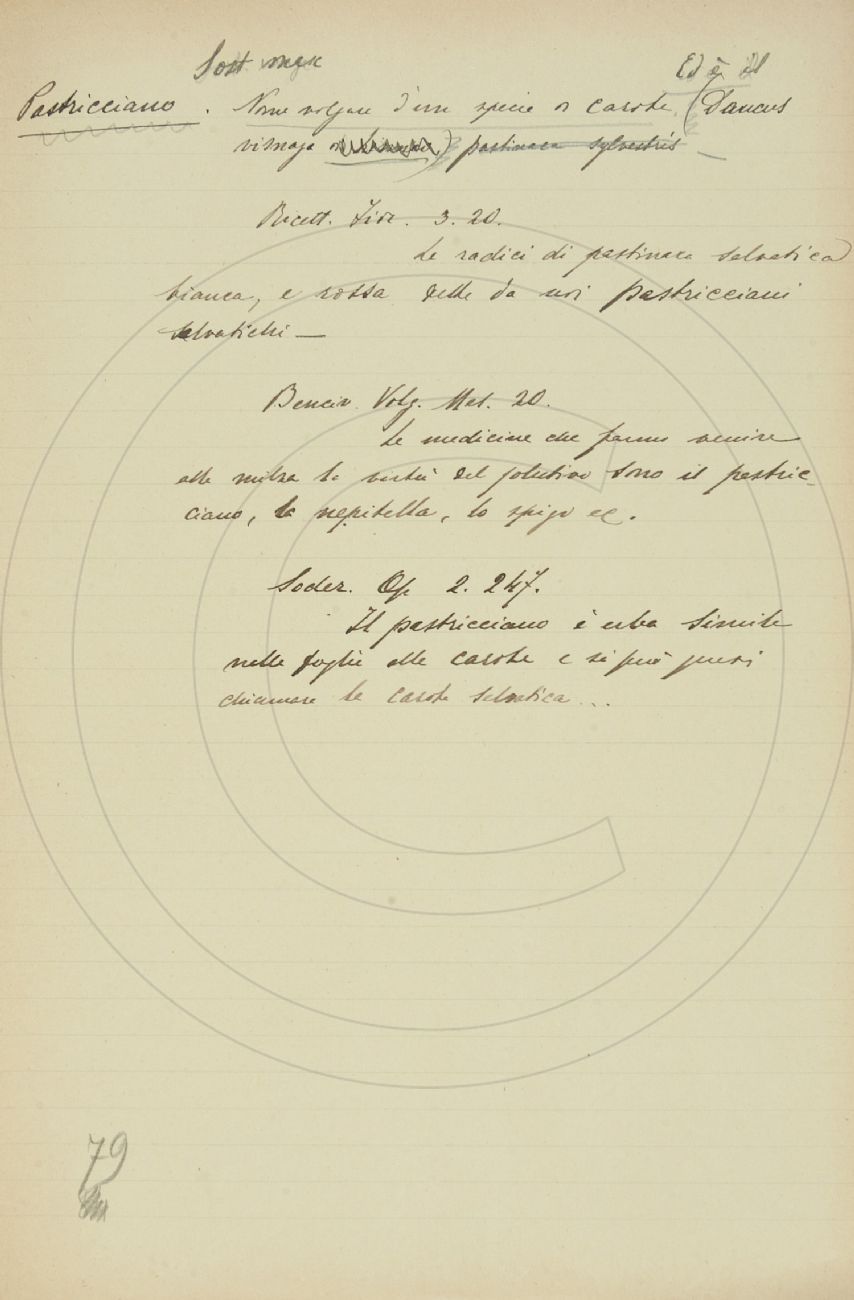 Sost. masc Ed è il
Pastricciano. Nome volgare d'una specie di carota (Daucus
visnaga) pastinaca sylvestris —
Ricett. Fior. 3. 20.
Le radici di pastinaca salvatica
bianca, e rossa dette da noi pastricciani
salvatichi —
Benciv. Volg. Mes. 20.
Le medicine che fanno venire
alla milza la virtù del solutivo sono il pastric-
ciano, la nepitella, lo spigo ec.
Soder. Op 2. 247.
Il pastricciano è erba simile
nelle foglie alle carote e si può quasi
chiamare la carota salvatica...
79